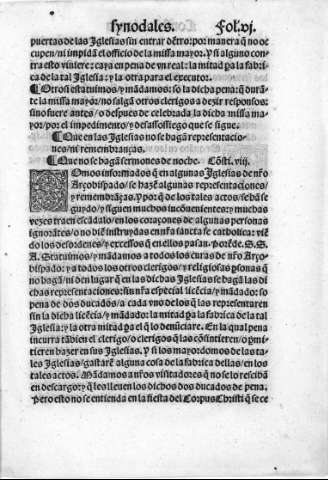 synodales. Fol.vj.
puertas de las Iglesias sin entrar dẽtro: por manera q̃ no o
cupen/ni impidã el officio de la missa mayor. Y si alguno con
tra esto viniere: caya en pena de vn real: la mitad pa la fabri
ca de la tal Iglesia: y la otra para el executor.
¶ Otrosi estatuimos y mãdamos: so la dicha pena: q̃ durã
te la missa mayor/no salgã otros clerigos a dezir responsos:
sino fuere antes/o despues de celebrada la dicha missa ma
yor/por el impedimẽto y desassossiego que se sigue.
¶ Que en las Iglesias no se bagã representacio
nes/ni remembrãças.
¶ Que no se bagã sermones de noche. Cõsti. viij.
SOmos informados q̃ en algunas Iglesias de nr̃o
Arçobispado/se bazẽ algunas representaciones/
y remembrãças. Y por q̃ de los tales actos/se bã se
guydo/y siguen muchos incõuenientes: y muchas
vezes traen escãdalo en los coraçones de algunas personas
ignorãtes/o no biẽ instruydas en nr̃a sancta fe catholica: viẽ
do los desordenes/y excessos q̃ en ellos passan. Porẽde. S.S.
A. Statuimos/y mãdamos a todos los curas de nr̃o Arço
bispado: y a todos los otros clerigos/y religiosas psonas q̃
no bagã/ni den lugar q̃ en las dichas Iglesias se bagã las di
chas representaciones: sin nr̃a especial licẽcia/y mãdado: so
pena de dos ducados/a cada vno de los q̃ las representaren
sin la dicha licẽcia/y mãdado: la mitad pa la fabrica de la tal
Iglesia: y la otra mitad pa el q̃ lo denũciare. En la qual pena
incurra tãbien el clerigo/o clerigos q̃ las cõsintieren/o pmi
tieren bazer en sus Iglesias. Y si los mayordomos de las ta
les Iglesias/gastarẽ alguna cosa de la fabrica dellas/en los
tales actos. Mãdamos a nr̃os visitadores q̃ no se lo rescibã
en descargo: y q̃ les lleuen los dichos dos ducados de pena.
Pero esto no se entienda en la fiesta del Corpus Christi q̃ se ce